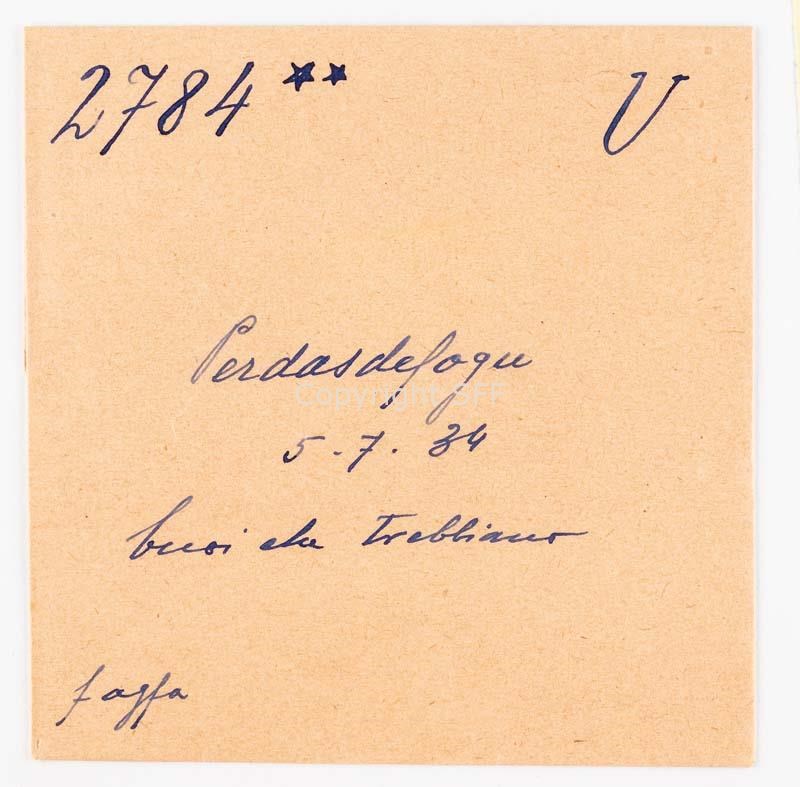 2784** V
Perdasdefogu
Copyright SFF
5-7.34
buoi che trebbiano
f agfa